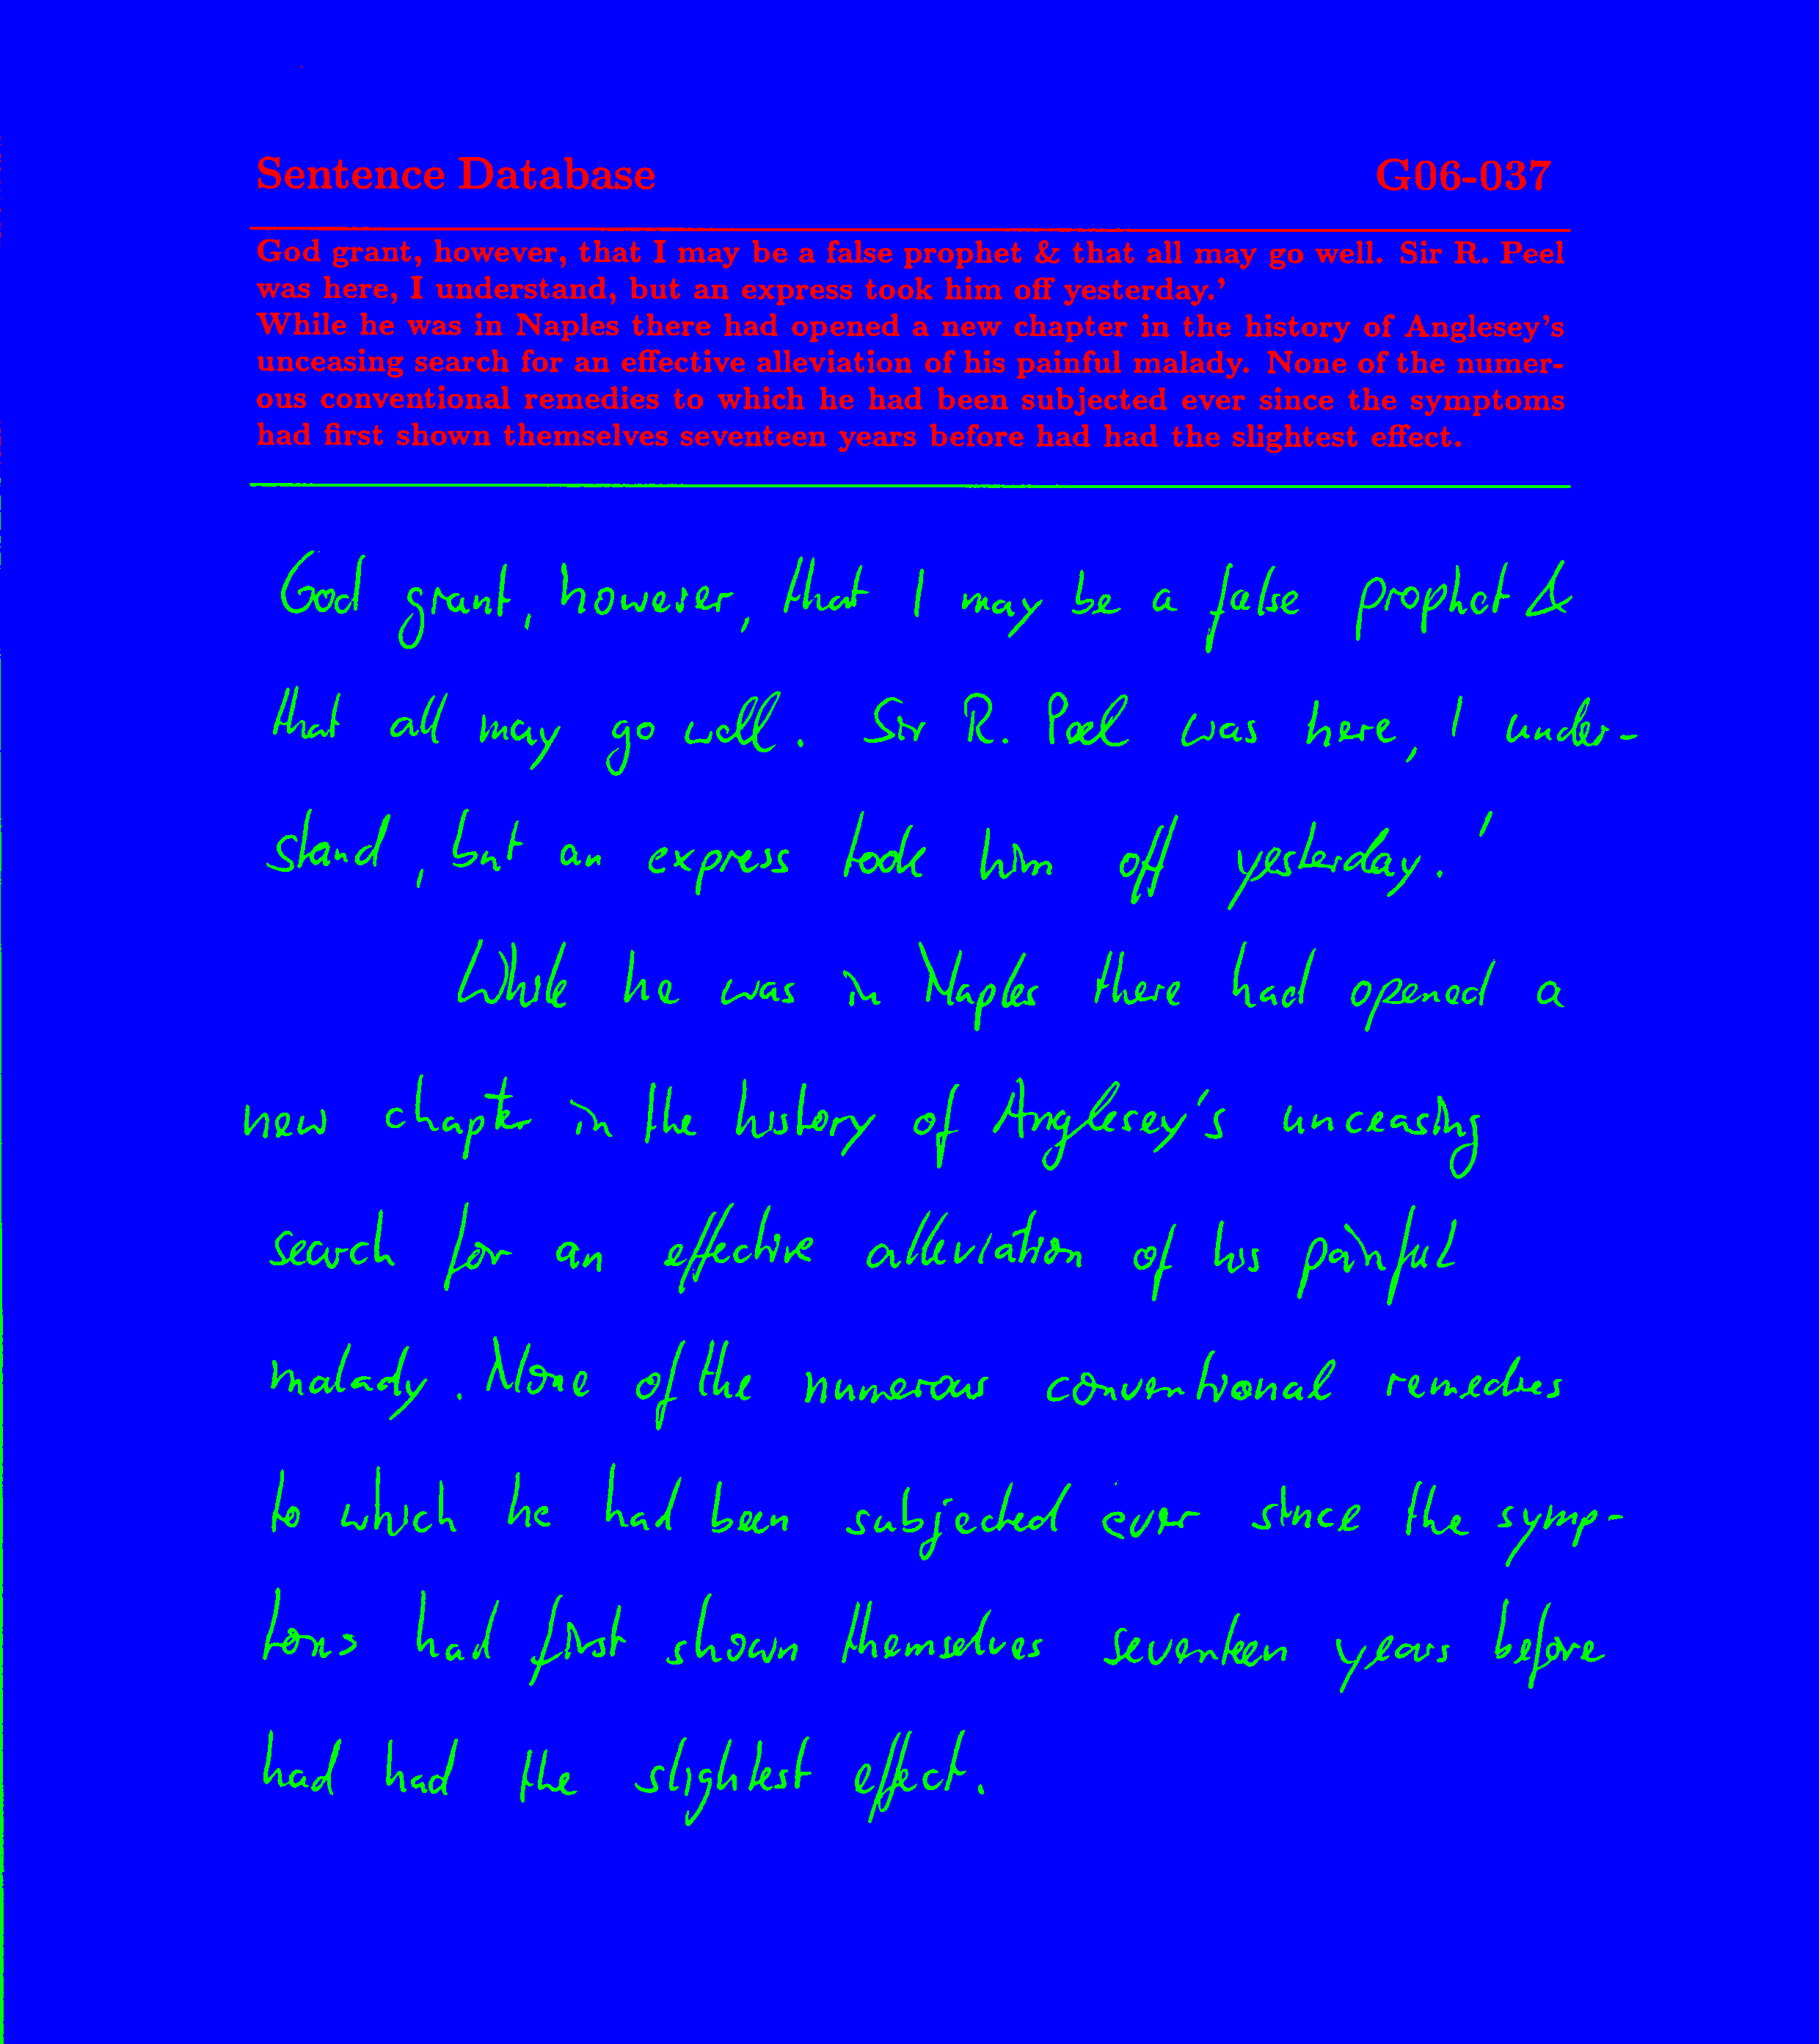 Sentence Database G06-037
God grant, however, that I may be a false prophet & that all may go well. Sir R. Peel
was here, I understand, but an express took him off yesterday.'
While he was in Naples there had opened a new chapter in the history of Anglesey's
unceasing search for an effective alleviation of his painful malady. None of the numer-
ous conventional remedies to which he had been subjected ever since the symptoms
had first shown themselves seventeen years before had had the slightest effect.
God grant, however, that I may be a false prophet &
that all may go well. Sir R. Peel was here, I under-
stand, but an express took him off yesterday.'
While he was in Naples there had opened a
new chapter in the history of Anglesey's unceasing
search for an effective alleviation of his painful
malady. None of the numerous conventional remedies
to which he had been subjected ever since the symp-
toms had first shown themselves seventeen years before
had had the slightest effect.